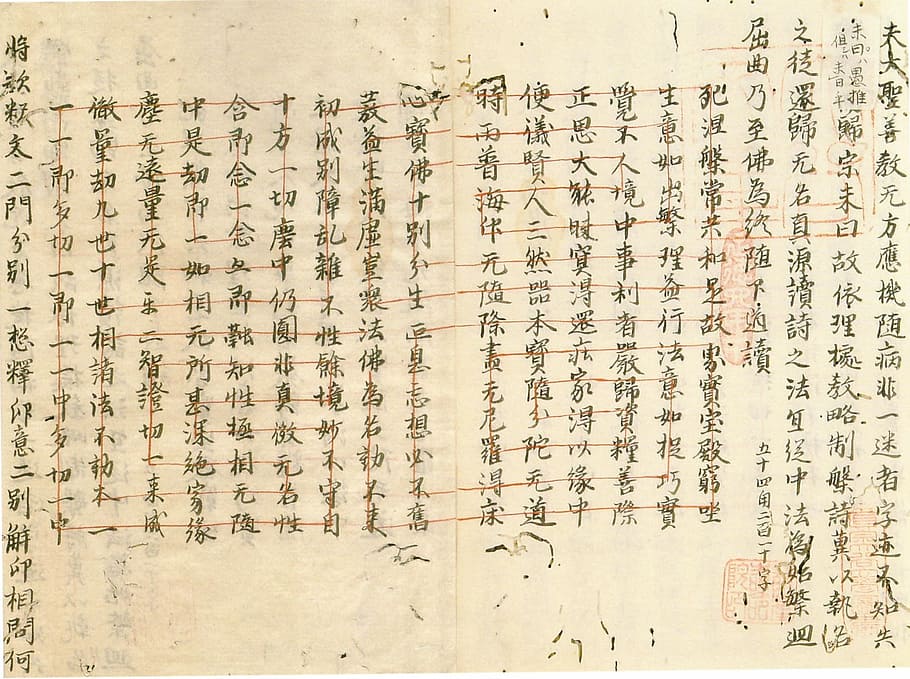 夫大聖善教无方應機随病非一迷者字迹不知失
歸宗未曰故依理㨿教略制槃詩冀以執名
之徒還歸无名真源讀詩之法宜從中法為始繁迴
屈曲乃至佛為終随印道讀 五十四角二百一十字
死涅槃常共和是故界實寶殿窮坐
生意如出繁理益行法意如捉巧實
覺不人境中事利者嚴歸資糧善際
正思大能昧實得還莊家得以緣中
便議賢人三然器本寶隨分陀无道
時雨普海印无隨際盡无尼羅得床
心寶佛十別分生叵息忘想必不舊
蒙益生滿虛空衆法佛為名動不来
初成別障乱雜不性餘境妙不守自
十方一切塵中仍圓非真微无名性
含即念一念亦即融知性極相无随
中是劫即一如相无所甚深絶家緣
塵无遠量无是生二智證切一来成
微量劫九世十世相諸法不動本一
一一即多切一即一一中多切一中
將欲釋文二門分別一惣釋印意二別解印相問何